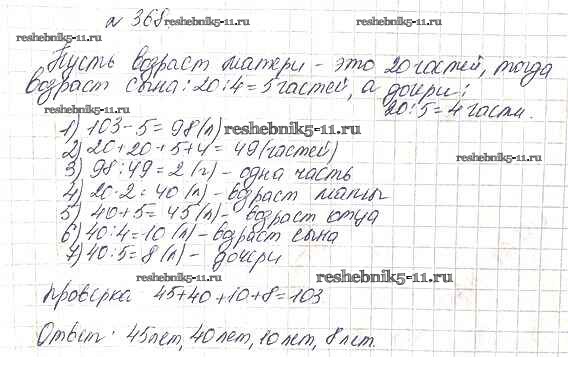 № 368 reshebnik5-11.ru
reshebnik5-11.ru reshebnik5-11.ru
Пусть возраст матери - это 20 частей, тогда
возраст сына: 20:4=5 частей, а дочери:
reshebnik5-11.ru 20:5=4 части.
1) 103-5=98(л) reshebnik5-11.ru
2) 20+20+5+4=49(частей)
reshebnik5-11.ru
3) 98:49=2(г)- одна часть
4) 20·2=40(л)- возраст мамы
5) 40+5=45(л)- возраст отца
reshebnik5-11.ru
6) 40:4=10(л)- возраст сына
7) 40:5=8(л)- дочери
reshebnik5-11.ru reshebnik5-11.ru
Проверка 45+40+10+8=103
Ответ: 45лет, 40лет, 10лет, 8лет.